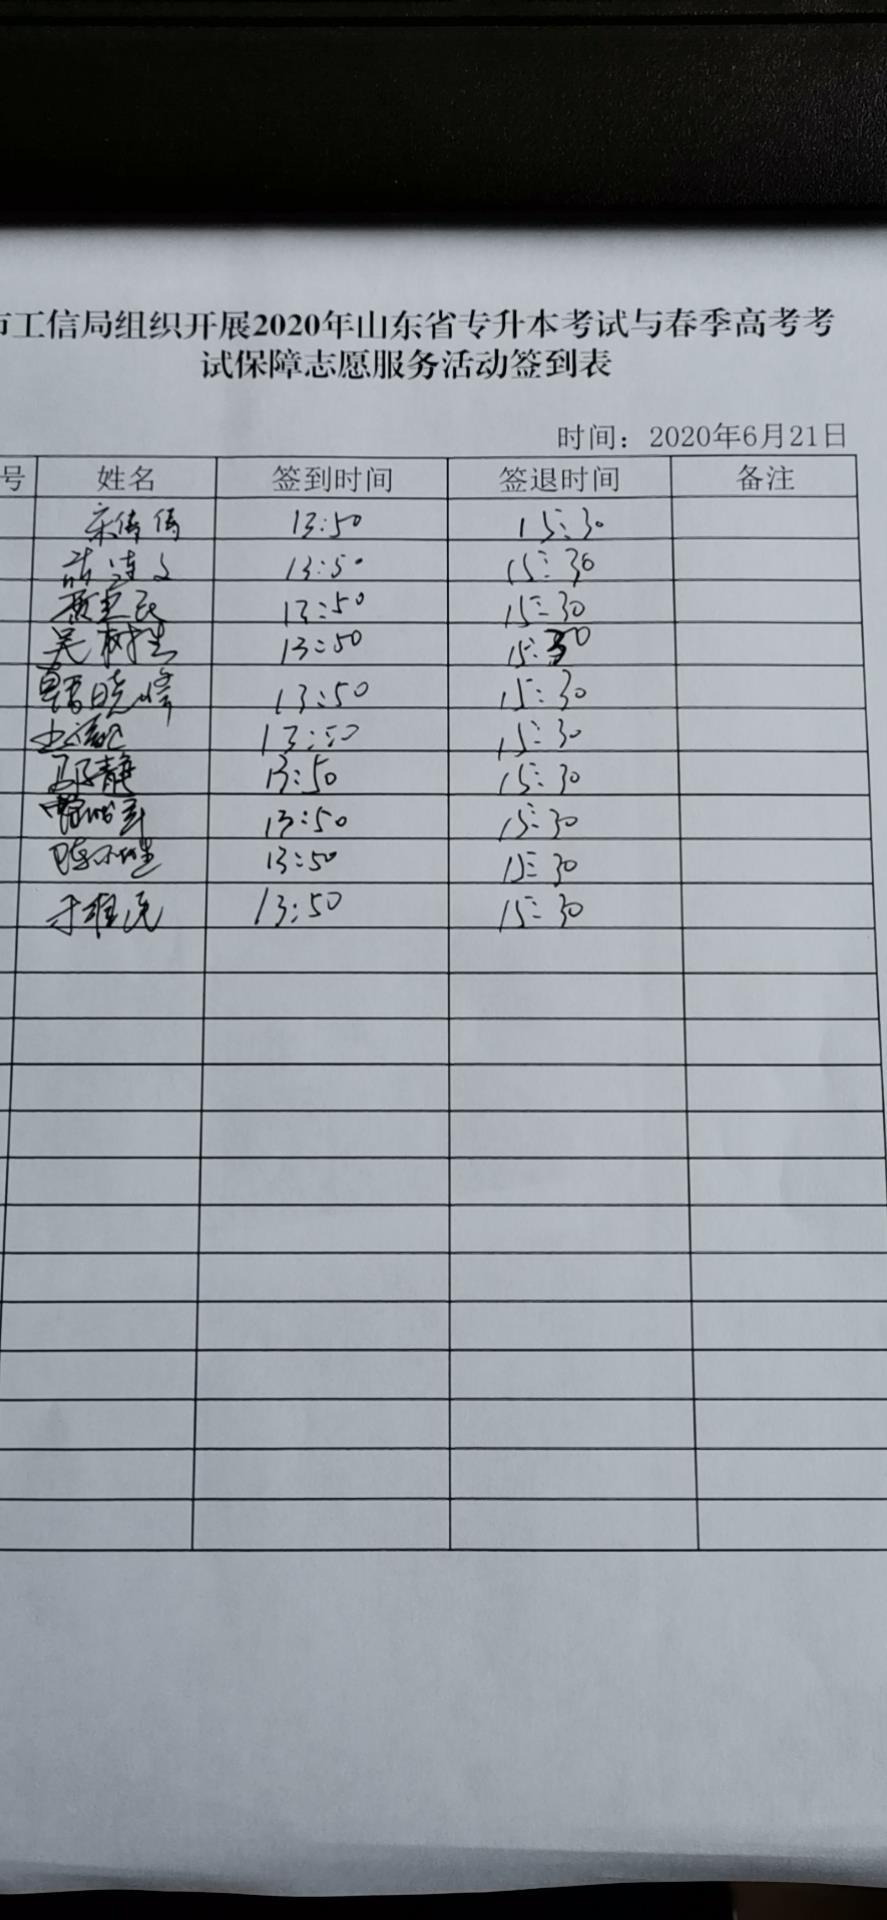 市工信局组织开展2020年山东省专升本考试与春季高考考
试保障志愿服务活动签到表
时间：2020年6月21日
号 姓名 签到时间 签退时间 备注
宋倩倩 13:50 15:30
13:50 15:30
13:50 15:30
吴树生 13:50 15:30
韩晓峰 13:50 15:30
13:50 15:30
邵静 13:50 15:30
13:50 15:30
13:50 15:30
13:50 15:30